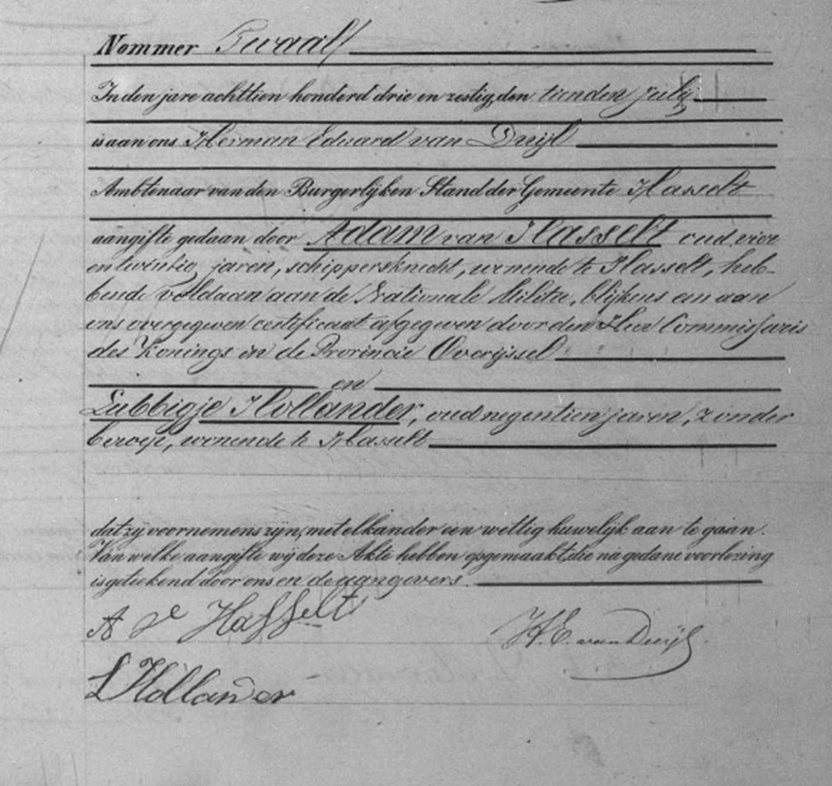 Nommer Twaalf
In den jare achttien honderd drie en zestig, den tienden july
is aan ons Herman Edward van Duijl
Ambtenaar van den Burgerlijken Stand der Gemeente Hasselt
aangifte gedaan door Adam van Hasselt oud vier
en twintig jaren, schippersknecht, wonende te Hasselt, heb-
bende voldaan aan de Nationale Militie, blijkens een aan
ons overgegeven certificaat afgegeven door den Heer Commissaris
des Konings in de Provincie Overijssel
en
Lubbigje Hollander, oud negentien jaren, zonder
beroep, wonende te Hasselt
dat zij voornemens zijn, met elkander een wettig huwelijk aan te gaan.
Van welke aangifte wij deze Akte hebben opgemaakt, die na gedane voorlezing
is geteekend door ons en de aangevers.
A v Hasselt
H. E. van Duijl.
L Hollander